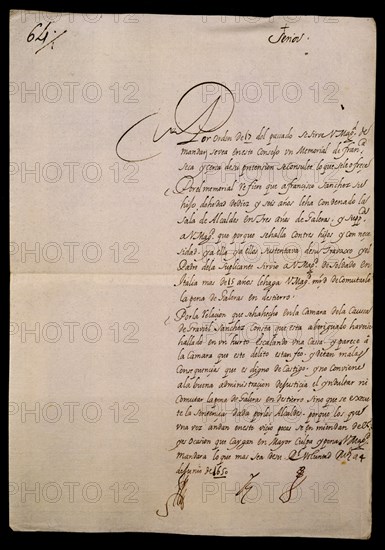 64
Señor.
Por orden de 17 del pasado se sirve V Mag.d
mandar se vea en este Consejo un Memorial de Fran.ca
y cerca de su pretension se consulte lo que se
el memorial refiere que a francisco Sanchez su
hijo de hedad de Diez y seis años le ha Condenado la
Sala de Alcaldes en Tres años de Galeras, y Supp.ca
a V Mag.d que por que se halla Con tres hijos y Con nece
sidad, y a ella la Sustentava de su Travajo y el
Padre del Suplicante Sirvio a V Mag.d de Soldado en
Italia mas de 15 años le haga V Mag.d m.d de Comutarle
la pena de Galeras en destierro
Por la Relacion que se ha hecho en la Camara de la Causa
de Sanchez Consta que esta averiguado haverse
hallado en un hurto escalando Una Casa y parece a
la Camara que este delito es tan feo y de tan malas
Consequencias que es digno de Castigo y no conviene
a la buena administracion de Justicia el yndultar ni
Comutar la pena de Galeras en destierro Sino que se execu
te la Sentencia dada por los Alcaldes porque los que
una vez andan en este vicio pocas se en miendan de el
y es ocasion que Caygan en Mayor Culpa V Mag.d
Mandara lo que mas sea de su R.l Voluntad 14
de Junio de 1650
PHOTO 12